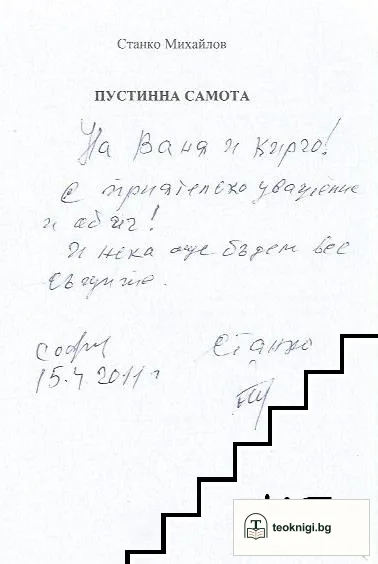 Станко Михайлов
ПУСТИННА САМОТА
На Ваня и Кирчо!
С приятелско уважение
и обич!
И нека още бъдем все
София
15.4 2011 г
Станко
teoknigi.bg